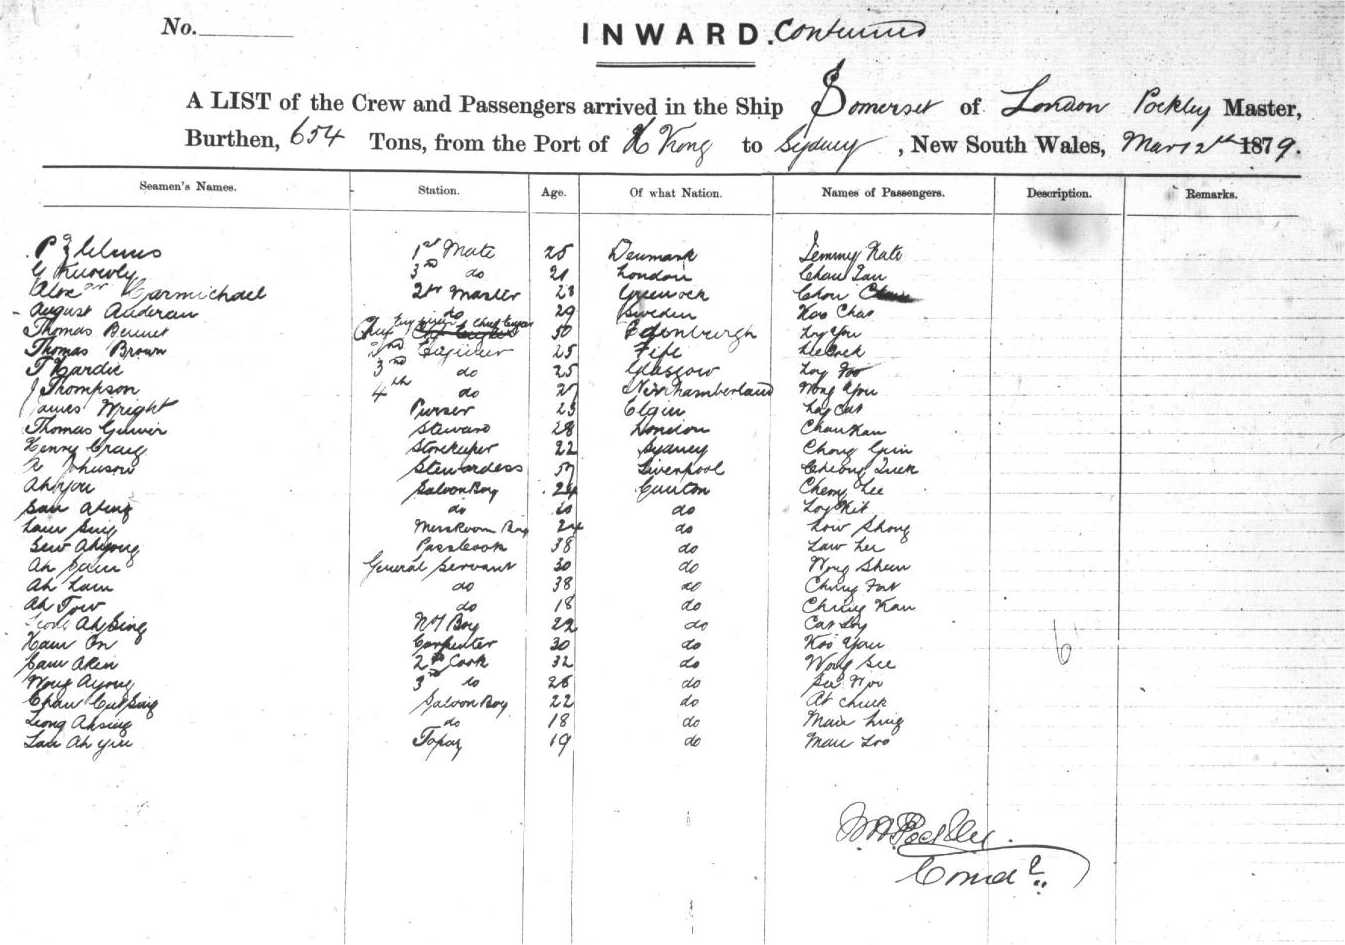 No.
INWARD. Continued
A LIST of the Crew and Passengers arrived in the Ship Somerset of London Pockley Master,
Burthen, 654 Tons, from the Port of H Kong to Sydney, New South Wales, Mar 12th 1879.
Seamen's Names. Station. Age. Of what Nation. Names of Passengers. Description. Remarks.
1st Mate 25 Denmark Jemmy Kate
3rd do 21 London Chau
Alexr Carmichael 2nd Master 28 Greenock Chou
August do 29 Sweden Koo Chao
Thomas Bennet Chief 50 Edenburgh Loy You
Thomas Brown 2nd Engineer 25 Fife
T Hardie 3rd do 25 Glasgow Loy Foo
J Thompson 4th do Northamberland Wong You
James Wright Purser 23 Elgin
Thomas Steward 28 London Chau Kau
Henry Craig Storekeeper 22 Sydney Chong
Johnson Stewardess Liverpool Cheong
Ah You Saloon Boy 24 Canton Lee
do do Loy Kit
Mess Room Boy 24 do Low Shong
38 do Law Lee
Ah Sam General Servant 30 do Wong Sheu
Ah Lam do 38 do Ching Fat
Ah Tow do 18 do Ching Kau
Ah Sing Boy 22 do
Kam On Carpenter 30 do Koo Yau
2nd Cook 32 do Wong See
Wong Ayong 3rd do 26 do
Saloon Boy 22 do At Chuck
Leong Ahsing do 18 do
Lau Ah Topaz 19 do Mau Loo
6
Pockley
Comdr